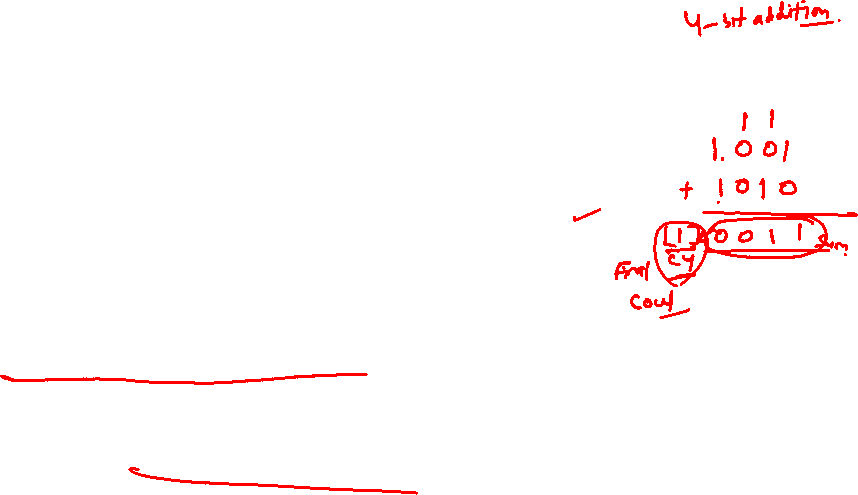 4-bit addition.
1 1
1.001
+ 1010
[1] 0011 Sum
CY
Final
Cout